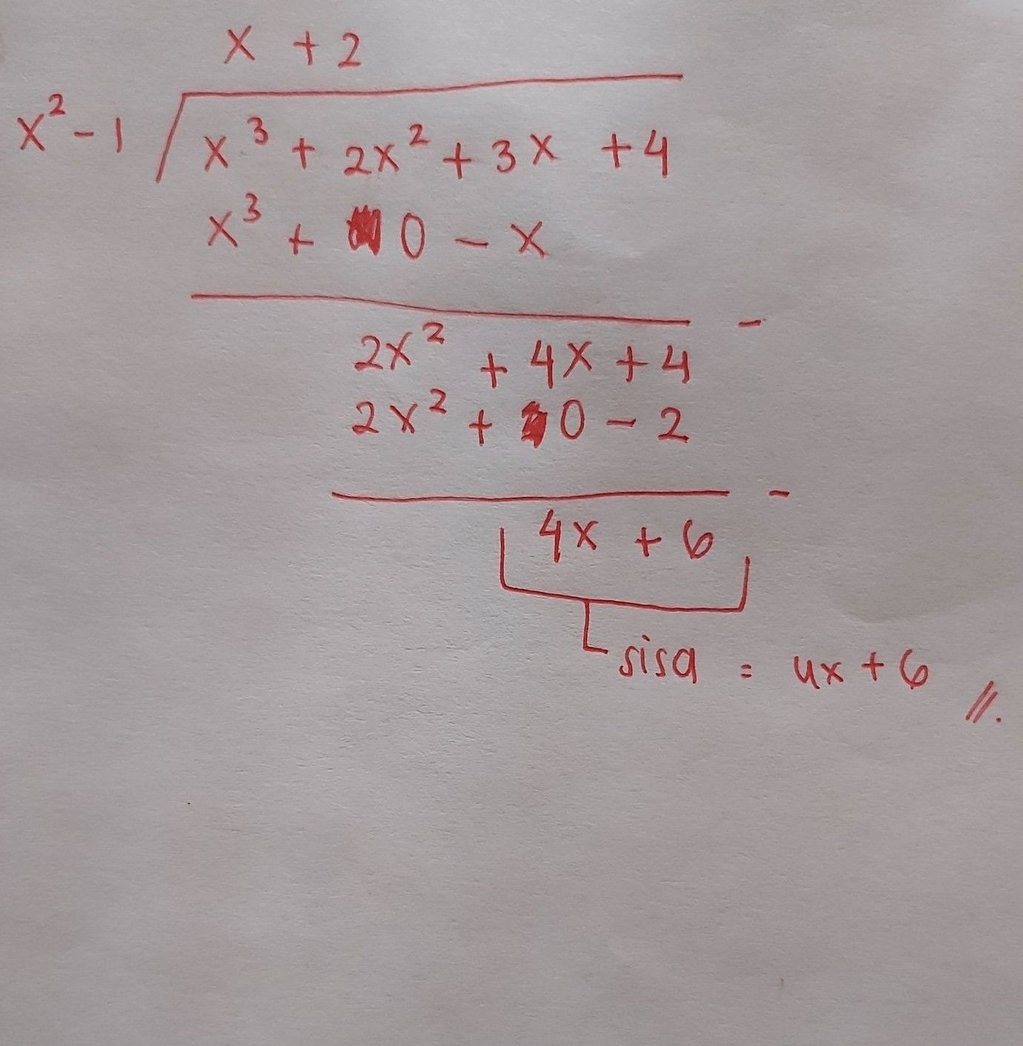 x + 2
x² - 1 / x³ + 2x² + 3x + 4
x³ + 0 - x
-
2x² + 4x + 4
2x² + 0 - 2
-
4x + 6
sisa = 4x + 6 //.